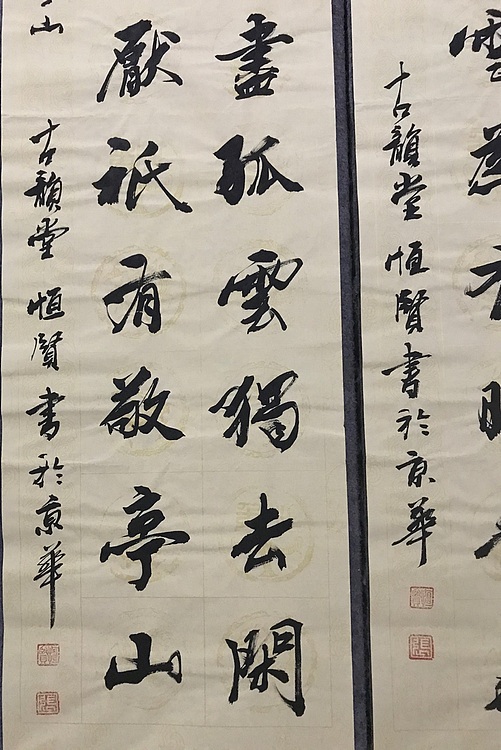 古韻堂 恒賢書於京華
盡孤雲獨去閑
厭祇有敬亭山
古韻堂 恒賢書於京華